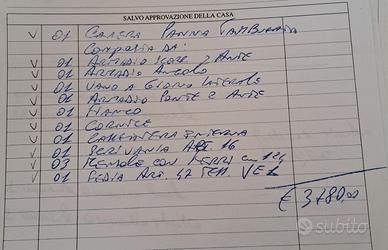 SALVO APPROVAZIONE DELLA CASA
V 01 CAMERA PANNA TAMBURATA
COMPOSTA DA:
V 01 ARMADIO SCORR. 2 ANTE
V 01 ARMADIO ANGOLO
V 01 VANO A GIORNO LATERALE
V 01 ARMADIO PONTE 2 ANTE
V 01 FIANCO
V 01 CORNICE
V 01 CASSETTIERA INTERNA
V 01 SCRIVANIA ART. 16
V 03 MENSOLE CON FERRI cm 124
V 01 SEDIA ART. 47
€ 3780,00
subito